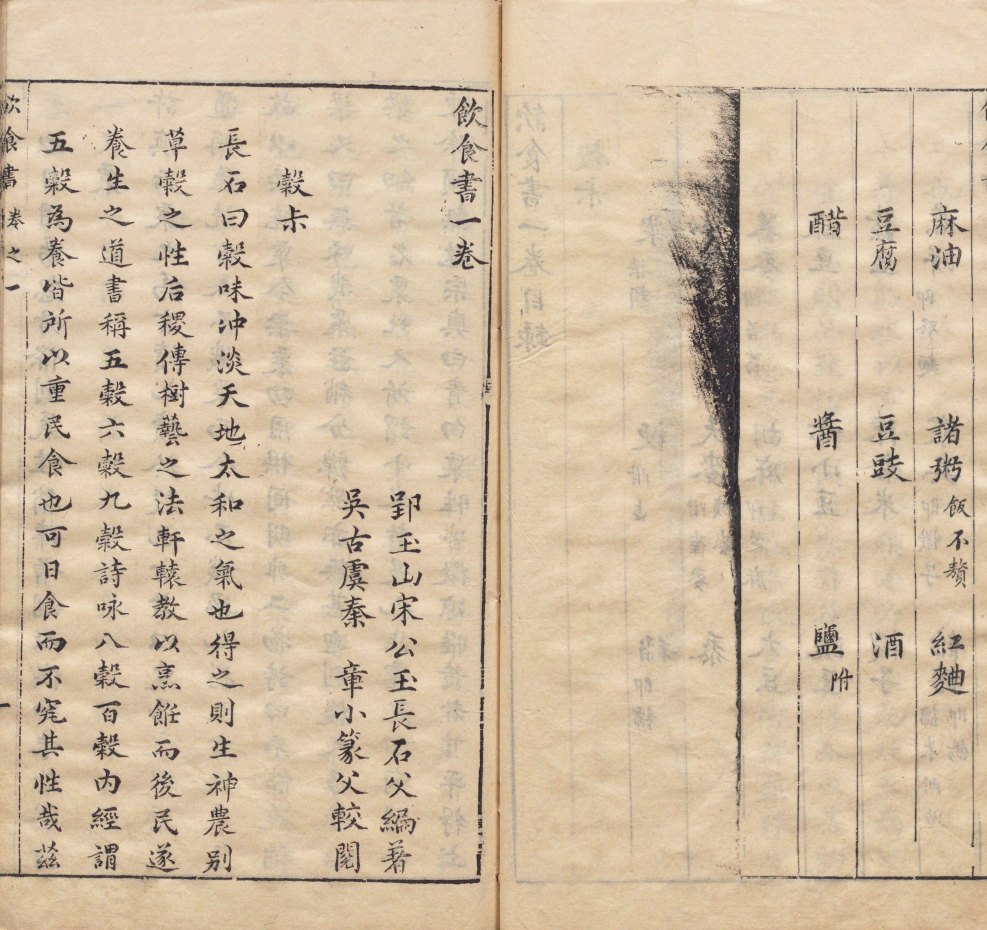 麻油 諸粥飯不贅 紅麯
豆腐 豆豉 酒
醋 醬 鹽附
飲食書一卷
穀部
郢玉山宋公玉長石父編著
吳古虞秦 章小篆父較閱
長石曰穀味冲淡天地太和之氣也得之則生神農别
草穀之性后稷傳樹藝之法軒轅教以烹飪而後民遂
養生之道書稱五穀六穀九穀詩咏八穀百穀內經謂
五穀為養皆所以重民食也可日食而不究其性哉茲
飲食書 卷之一